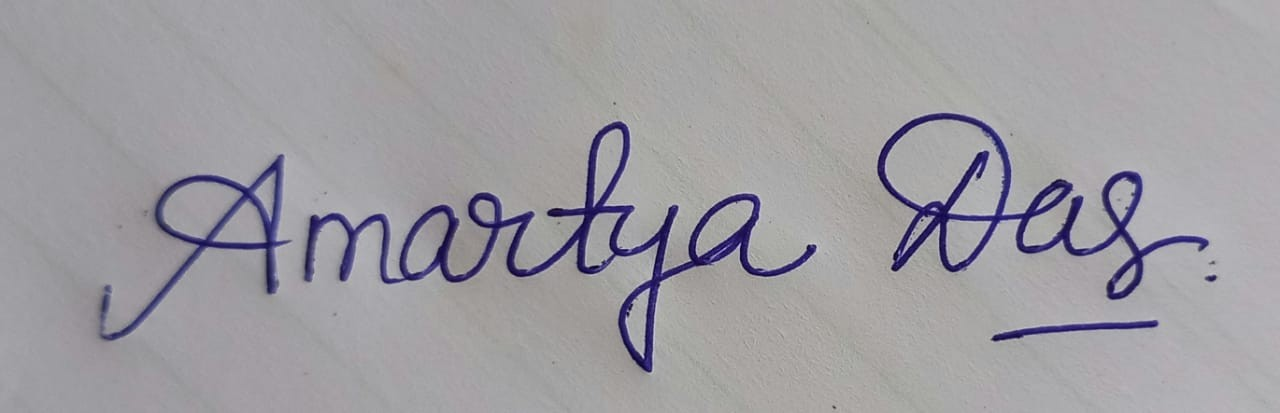 Amartya Das.